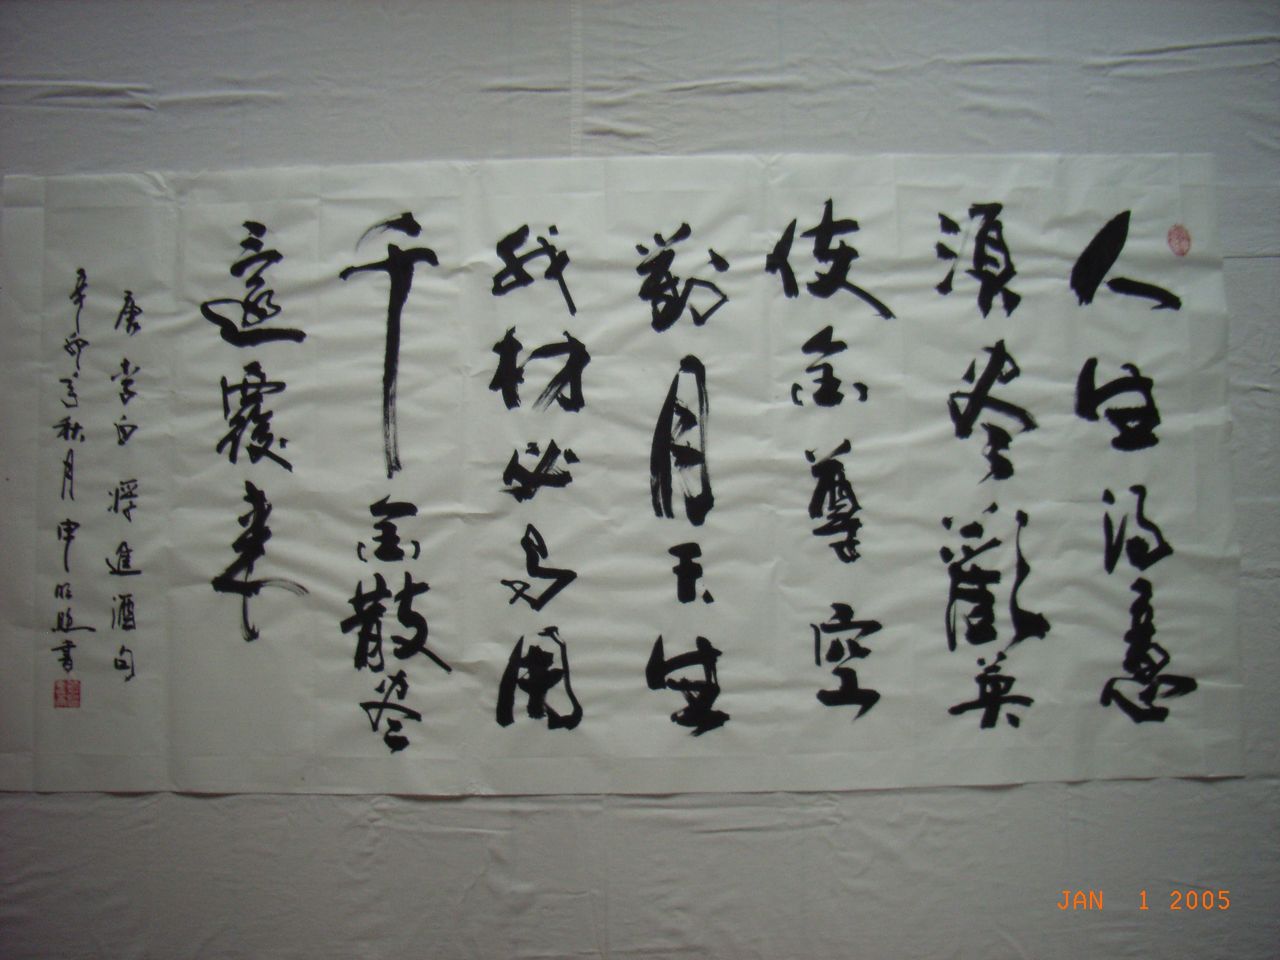 人生得意
須尽歡莫
使金尊空
對月天生
我材必有用
千金散尽
還覆来
唐李白將進酒句
辛卯年秋月申旺照書
JAN 1 2005